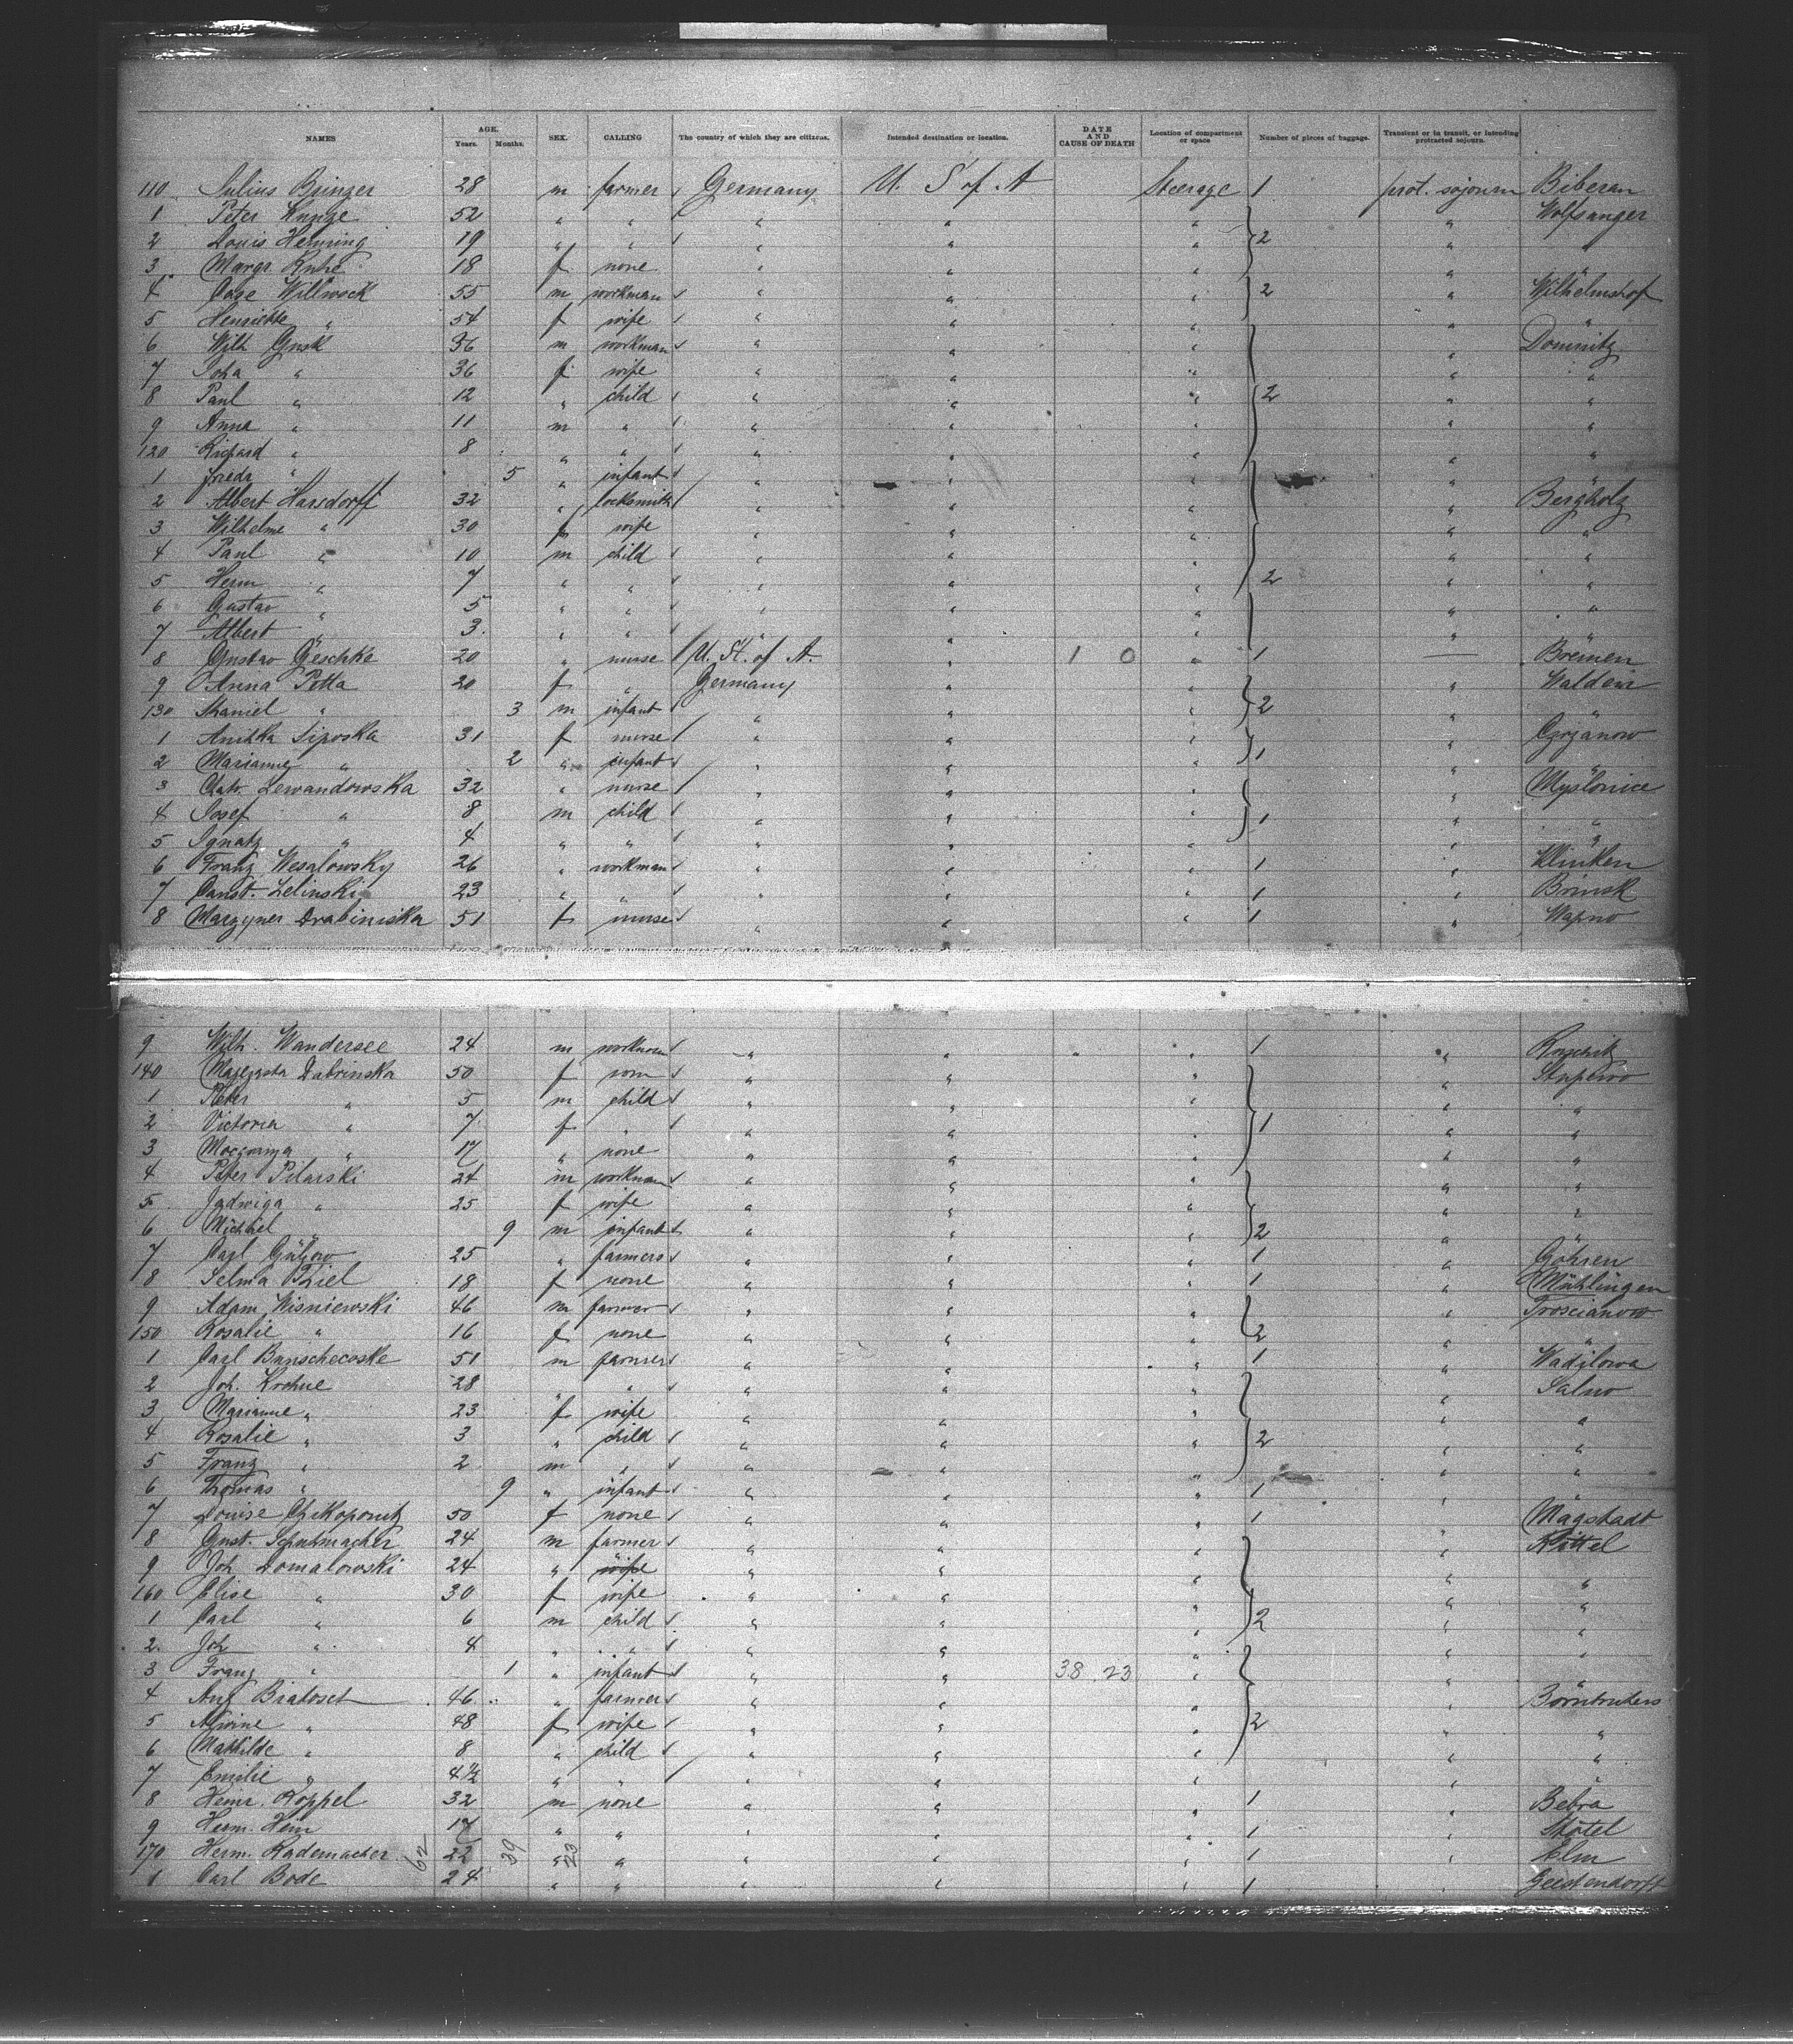 NAMES AGE. Years. Months. SEX. CALLING The country of which they are citizens. Intended destination or location. DATE AND CAUSE OF DEATH Location of compartment or space Number of pieces of baggage. Transient or in transit, or intending protracted sojourn.
110 Julius Bringer 28 m farmer Germany U. S of A Steerage 1 prot. sojourn Biberan
1 Peter Kunze 52 " " " " " " Wolfsanger
2 Louis Henning 19 " " " " " 2 " "
3 Marga Kuhe 18 f none " " " "
4 Case Willwock 55 m workman " " " 2 " Wilhelmshof
5 Henriette " 54 f wife " " " " "
6 Wilh Gusk 36 m workman " " " " Domnitz
7 Joha " 36 f wife " " " " "
8 Paul " 12 " child " " " 2 " "
9 Anna " 11 m " " " " " "
120 Richard " 8 " " " " " " "
1 Frieda " 5 " infant " " " " "
2 Albert Harsdorff 32 " locksmith " " " " Bergholz
3 Wilhelme " 30 f wife " " " " "
4 Paul " 10 m child " " " " "
5 Herm " 7 " " " " " 2 " "
6 Gustav " 5 " " " " " " "
7 Albert " 3 " " " " " " "
8 Gustav Geschke 20 " nurse U. St. of A. " 1 0 " 1 — Bremen
9 Anna Potta 20 f " Germany " " " Waldein
130 Staniel " 3 m infant " " " 2 " "
1 Anikka Siposka 31 f nurse " " " " Cgrjanow
2 Marianne " 2 " infant " " " 1 " "
3 Cath. Lewandowska 32 " nurse " " " " Myslonice
4 Josef " 8 m child " " " 1 " "
5 Ignatz " 4 " " " " " " "
6 Franz Wesalowsky 26 " workman " " " 1 " Klinken
7 Const. Zelinski 23 " " " " " 1 " Brinsk
8 Margyner Drabiniska 51 f nurse " " " 1 " Wapno
9 Wilh. Wandersee 24 m workman " " " " 1 "
140 Dabrinska 50 f " " " " Stupewo
1 Peter " 5 m child " " " " "
2 Victoria " 7 f " " " " 1 " "
3 " 17 " none " " " " "
4 Peter Pilarski 24 m workman " " " " "
5 Jadwiga " 25 f wife " " " " "
6 Michael " 9 m infant " " " 2 " "
7 Carl Gützow 25 " farmers " " " 1 " Göhren
8 Selma Thiel 18 f none " " " 1 " Mühlingen
9 Adam Wisniewski 46 m farmer " " " " Troscianow
150 Rosalie " 16 f none " " " 2 " "
1 Carl Bunschecoske 51 m farmer " " " 1 " Wadilowa
2 Joh. Krohne 28 " " " " " " Salno
3 Marianne " 23 f wife " " " " "
4 Rosalie " 3 " child " " " 2 " "
5 Franz " 2 m " " " " " "
6 Thomas " 9 " infant " " " 1 " "
7 Louise 50 f none " " " 1 " Magstadt
8 Gust. Schuhmacher 24 m farmer " " " " Kittel
9 Joh Domalowski 24 " wife " " " " "
160 Elise " 30 f wife " " " " "
1 Carl " 6 m child " " " 2 " "
2 Joh " 4 " " " " " " "
3 Franz " 1 " infant " " 38 23 " " "
4 Aug Bialosch 46 " farmer " " " "
5 Alwine " 48 f wife " " " 2 " "
6 Mathilde " 8 " child " " " " "
7 Emilie " 4½ " " " " " " "
8 Heinr. Koppel 32 m none " " " 1 " Bebra
9 Herm. Hein 17 " " " " " 1 " Stotel
170 Herm. Rademacher 22 " " " " " 1 " Elm
1 Carl Bode 24 " " " " " 1 " Geestendorff
62 39 23